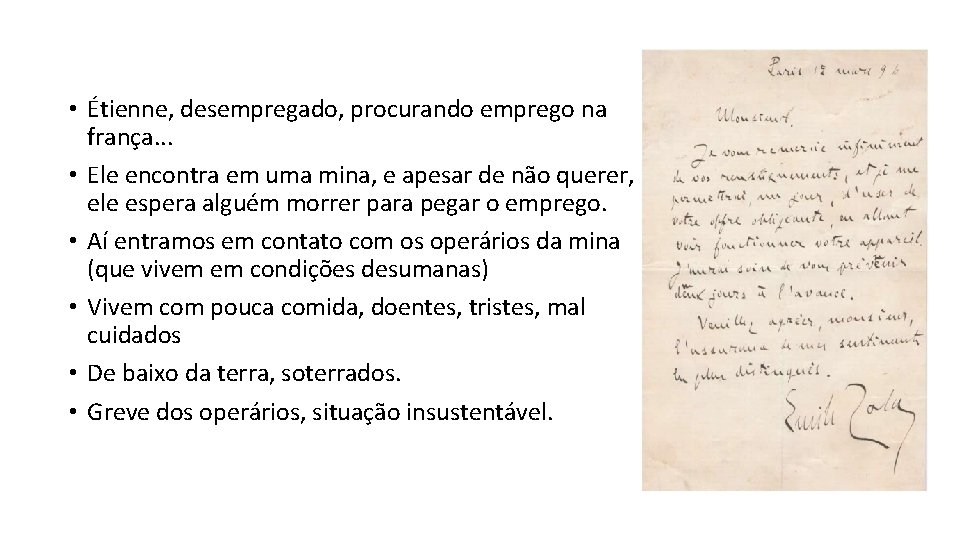 • Étienne, desempregado, procurando emprego na
frança...
• Ele encontra em uma mina, e apesar de não querer,
ele espera alguém morrer para pegar o emprego.
• Aí entramos em contato com os operários da mina
(que vivem em condições desumanas)
• Vivem com pouca comida, doentes, tristes, mal
cuidados
• De baixo da terra, soterrados.
• Greve dos operários, situação insustentável.
Paris 12 mars 96
Monsieur,
Je vous remercie infiniment
de vos renseignements, et je me
permettrai, un jour, d'user de
votre offre obligeante, en allant
voir fonctionner votre appareil.
J'aurai soin de vous prévenir
deux jours à l'avance.
Veuillez agréer, monsieur,
l'assurance de mes sentiments
les plus distingués.
Emile Zola